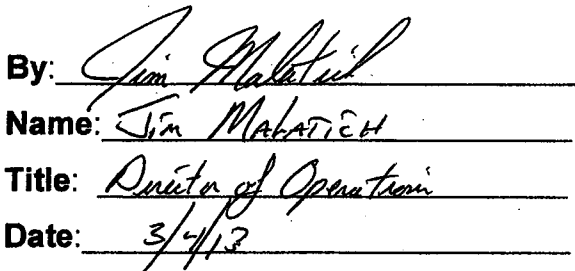 By: Jim Malatich
Name: Jim MALATICH
Title: Director of Operations
Date: 3/4/13